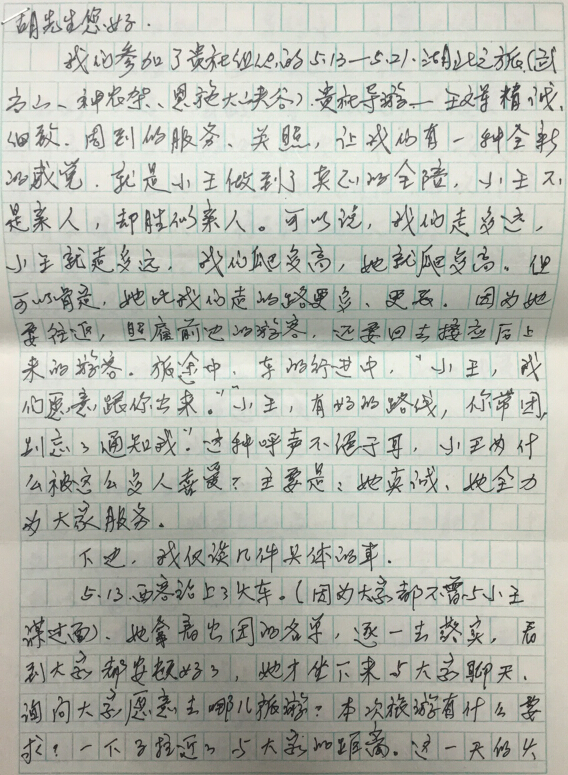 胡先生您好.
我们参加了贵社组织的5.13—5.21.湖北之旅(武
当山、神农架、恩施大峡谷).贵社导游—王文革精诚、
细致、周到的服务、关照,让我们有一种全新
的感觉.就是小王做到了真正的全陪,小王不
是亲人,却胜似亲人。可以说,我们走多远,
小王就走多远,我们爬多高,她就爬多高。但
可以肯定,她比我们走的路更多、更长。因为她
要往返,照雇前边的游客,还要回去接应后上
来的游客。旅途中,车的行进中,“小王,我
们愿意跟你出来。”“小王,有好的路线,你带团,
别忘了通知我”.这种呼声不绝于耳,小王为什
么被这么多人喜爱?主要是:她真诚、她全力
为大家服务。
下边,我仅谈几件具体的事.
5.13.西客站上了火车。(因为大家都不曾与小王
谋过面).她拿着出团的名单,逐一去落实,看
到大家都安顿好了,她才坐下来与大家聊天.
询问大家愿意去哪儿旅游?本次旅游有什么要
求?一下子拉近了与大家的距离。这一天的火